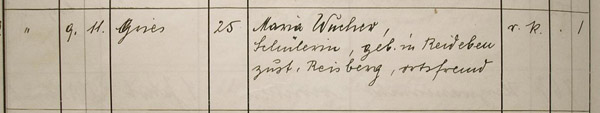 " 9. 11. Gries 25 Maria Wucher, r. k. . 1
Schülerin, geb. in Reideben
zust. Reisberg, ortsfremd